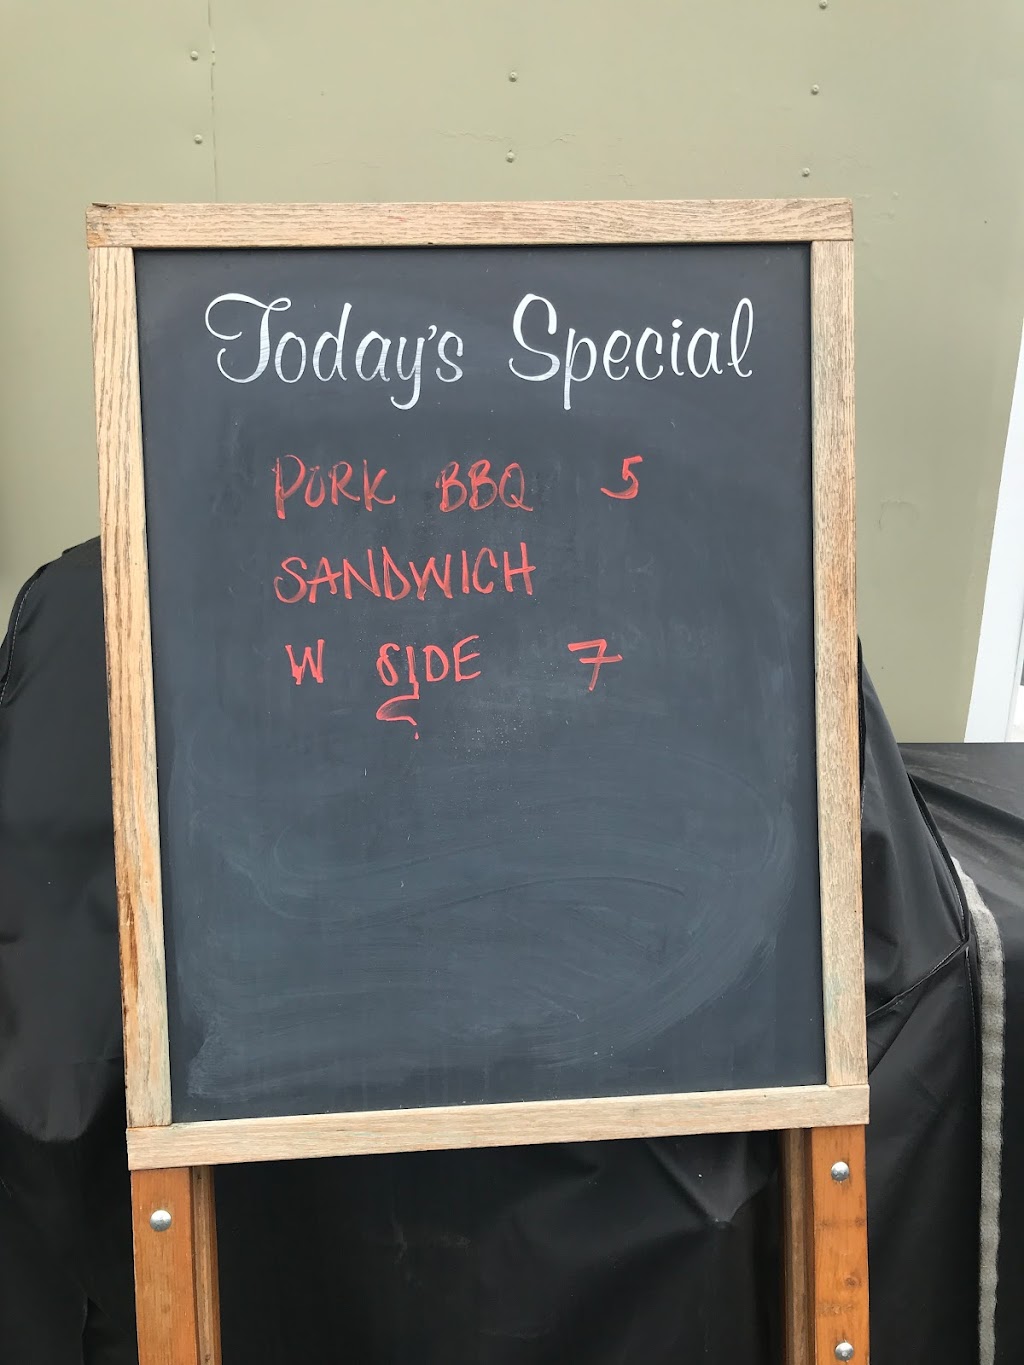 Today's Special
PORK BBQ 5
SANDWICH
W SIDE 7